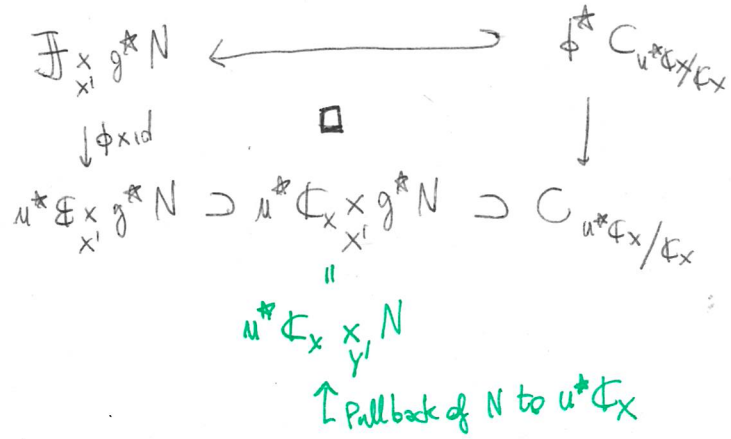 𝔽 ×_{X'} g*N ⟵ ϕ* C_{u*ℭ_X/ℭ_X}
↓ ϕ×id □ ↓
u*𝔈 ×_{X'} g*N ⊃ u*ℭ_X ×_{X'} g*N ⊃ C_{u*ℭ_X/ℭ_X}
=
u*ℭ_X ×_{Y'} N
↑ Pullback of N to u*ℭ_X